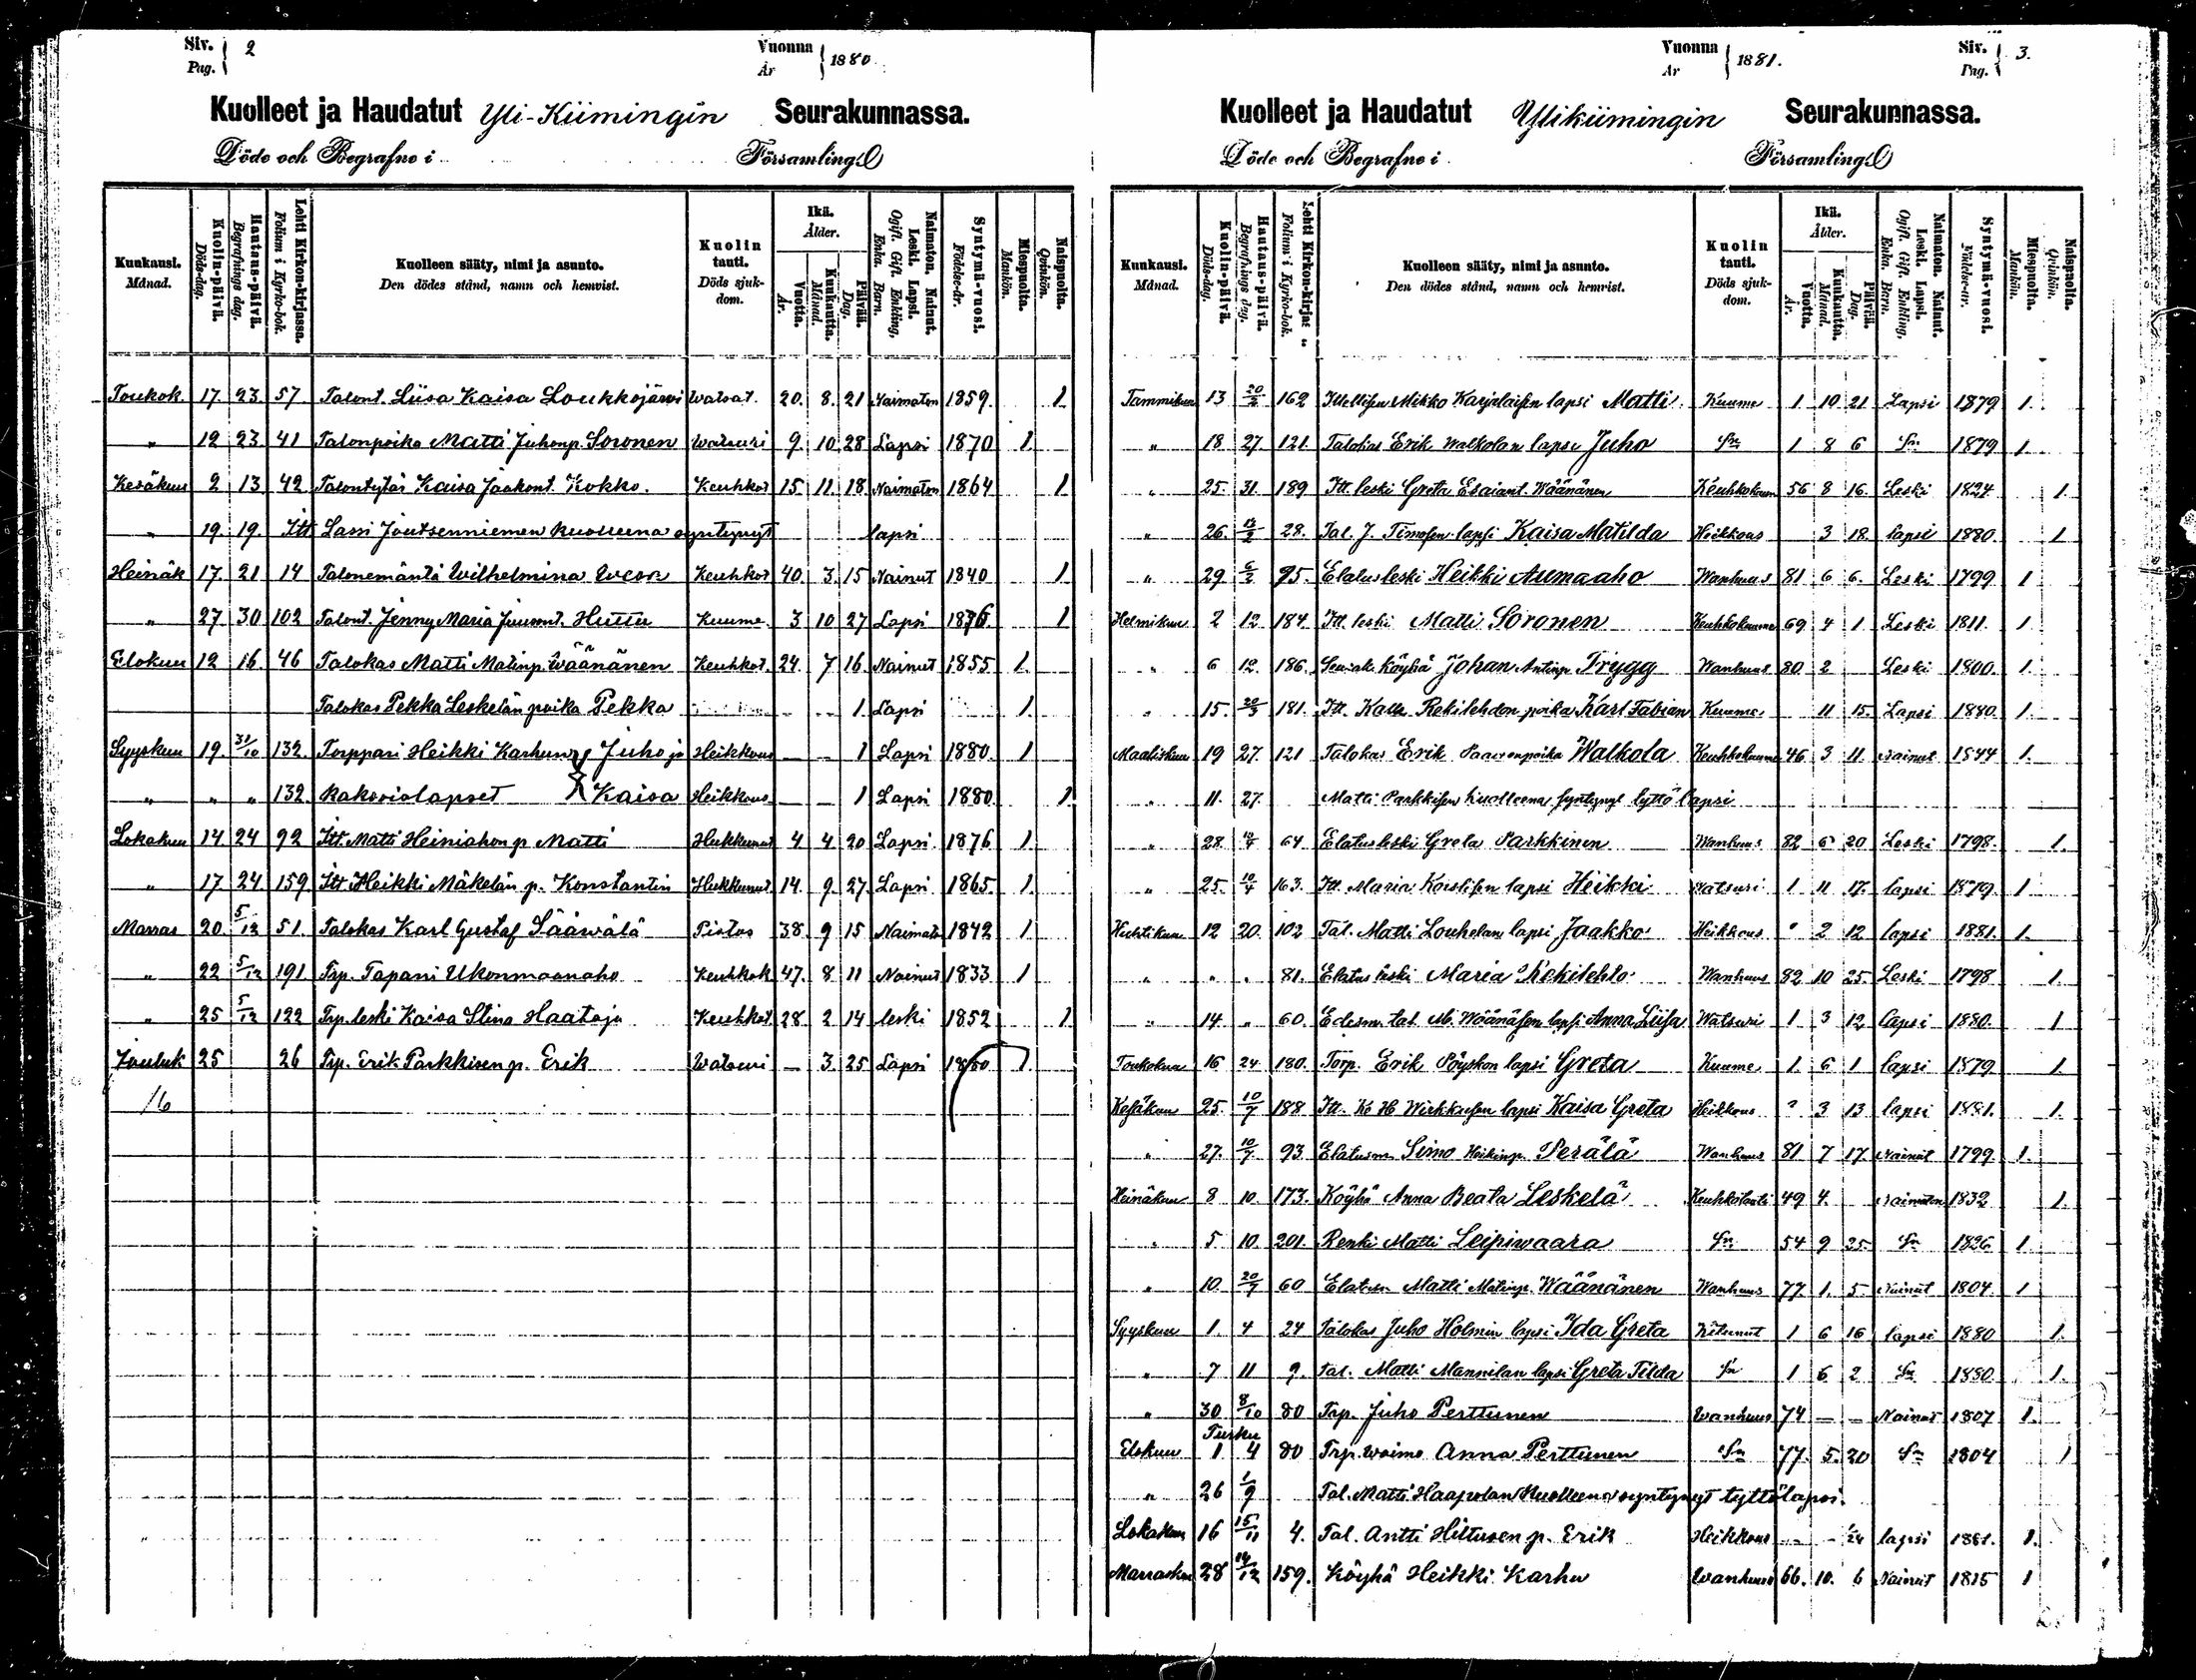 Siv. Pag. 2
Vuonna År 1880.
Kuolleet ja Haudatut Yli-Kiimingin Seurakunnassa.
Döde och Begrafne i Församling
Kuukausi. Månad.
Kuolin-päivä. Döds-dag.
Hautaus-päivä. Begrafnings dag.
Lehti Kirkon-kirjassa. Folium i Kyrko-bok.
Kuolleen sääty, nimi ja asunto. Den dödes stånd, namn och hemvist.
Kuolin tauti. Döds sjukdom.
Ikä. Ålder.
Vuotta. År.
Kuukautta. Månad.
Päivää. Dag.
Naimaton. Nainut. Leski. Lapsi. Ogift. Gift. Enkling, Enka. Barn.
Syntymä-vuosi. Födelse-år.
Miespuolta. Mankön.
Naispuolta. Qvinkön.
Toukok. 17. 23. 57. Talont. Liisa Kaisa Loukkojärvi Watsat. 20. 8. 21 Naimaton 1859. 1.
" 12 23 41 Talonpoika Matti Juhonp. Soronen Watsuri 9. 10 28 Lapsi 1870 1.
Kesäkuu 2 13 42 Talontytär Kaisa Jaakont. Kokko. Keuhkot 15 11 18 Naimaton 1864 1
" 19. 19. Itt Lassi Joutsenniemen kuolleena syntynyt lapsi
Heinäk 17. 21 14 Talonemäntä Wilhelmina Keuhkot 40. 3. 15 Nainut 1840 1
" 27 30 102 Talont. Jenny Maria Juusont. Huttu Kuume 3 10 27 Lapsi 1876. 1
Elokuu 12 16 46 Talokas Matti Matinp. Wäänänen Keuhkot. 24. 7 16 Nainut 1855 1.
Talokas Pekka Leskelän poika Pekka 1 Lapsi 1.
Syyskuu 19. 31/10 132. Torppari Heikki Karhun Juho ja Heikkous — — 1 Lapsi 1880. 1
" " " 132 kaksoislapset Kaisa Heikkous — — 1 Lapsi 1880 1.
Lokakuu 14 24 92 Itt. Matti Heiniahon p. Matti Hukkunut 4 4 20 Lapsi 1876 1
" 17 24 159 Itt Heikki Mäkelän p. Konstantin Hukkunut 14. 9. 27 Lapsi 1865. 1.
Marras 20 5/12 51. Talokas Karl Gustaf Sääwälä Pistos 38. 9 15 Naimato 1842 1
" 22 5/12 191 Trp. Tapani Ukonmaanaho Keuhkok 47. 8 11 Nainut 1833 1
" 25 5/12 122 Trp. leski Kaisa Stina Haataja Keuhkot 28 2 14 leski 1852 1
Jouluk 25 26 Trp. Erik Parkkisen p. Erik Watsuri — 3. 25 Lapsi 1880 1
16
Vuonna År 1881.
Siv. Pag. 3.
Kuolleet ja Haudatut Ylikiimingin Seurakunnassa.
Döde och Begrafne i Församling
Kuukausi. Månad.
Kuolin-päivä. Döds-dag.
Hautaus-päivä. Begrafnings dag.
Lehti Kirkon-kirjas Folium i Kyrko-bok.
Kuolleen sääty, nimi ja asunto. Den dödes stånd, namn och hemvist.
Kuolin tauti. Döds sjukdom.
Ikä. Ålder.
Vuotta. År.
Kuukautta. Månad.
Päivää. Dag.
Naimaton. Nainut. Leski. Lapsi. Ogift. Gift. Enkling, Enka. Barn.
Syntymä-vuosi. Födelse-år.
Miespuolta. Mankön.
Naispuolta. Qvinkön.
Tammikuu 13 162 Itellisen Mikko Karjalaisen lapsi Matti Kuume 1 10 21 Lapsi 1879 1.
" 18 27. 121. Talokas Erik Walkolan lapsi Juho Sm 1 8 6 Sm 1879 1
" 25. 31. 189 Itt. leski Greta Esaiant. Wäänänen Keuhkokuum 56 8 16. Leski 1824 1.
" 26. 28. Tal. J. Timosen lapsi Kaisa Matilda Heikkous 3 18. lapsi 1880. 1
" 29 6/2 95. Elatus leski Heikki Aumaaho Wanhuus 81 6 6. Leski 1799 1
Helmikuu 2 12 184. Itt. leski Matti Soronen Keuhkokuume 69 4 1. Leski 1811. 1
" 6 12. 186. Seurak. köyhä Johan Antinp. Trygg Wanhuus 80 2 Leski 1800. 1.
" 15. 20/3 181. Itt. Kalle Rekilehdon poika Karl Fabian Kuume 11 15. Lapsi 1880. 1.
Maaliskuu 19 27. 121 Talokas Erik Paavonpoika Walkola Keuhkokuume 46 3 11. Nainut 1844 1.
" 11. 27. Matti Parkkisen kuolleena syntynyt tyttölapsi
" 28. 10/4 64. Elatusleski Greta Parkkinen Wanhuus 82 6 20 Leski 1798. 1.
" 25. 10/4 163. Itt. Maria Koistisen lapsi Heikki Watsuri 1 11 17. lapsi 1879. 1
Huhtikuu 12 20. 102 Tal. Matti Louhelan lapsi Jaakko Heikkous " 2 12 lapsi 1881. 1.
" " " 81. Elatus leski Maria Rekilehto Wanhuus 82 10 25. Leski 1798 1.
" 14. " 60. Edesm. tal. M. Wäänäsen lapsi Anna Liisa Watsuri 1 3 12 Lapsi 1880. 1
Toukokuu 16 24 180. Torp. Erik Pöyskön lapsi Greta Kuume 1. 6 1 lapsi 1879 1.
Kesäkuu 25. 10/7 188 Itt. K. H. lapsi Kaisa Greta Heikkous " 3 13 lapsi 1881. 1.
" 27. 10/7 93. Elatusm. Simo Heikinp. Perälä Wanhuus 81 7 17. Nainut 1799. 1.
Heinäkuu 8 10. 173. Köyhä Anna Beata Leskelä Keuhkotauti 49 4. Naimaton 1832 1.
" 5 10. 201. Renki Matti Leipiwaara Sm 54 9 25. Sm 1826 1
" 10. 20/7 60 Elatusm Matti Matinp. Wäänänen Wanhuus 77 1. 5. Nainut 1804. 1
Syyskuu 1. 4 24 Talokas Juho Holmin lapsi Ida Greta Kitunut 1 6 16 lapsi 1880 1.
" 7 11 9. Tal. Matti Mannilan lapsi Greta Tilda Sm 1 6 2 Sm 1880. 1.
" 30 8/10 80 Trp. Juho Perttunen Wanhuus 74 — — Nainut 1807 1.
Turku
Elokuu 1 4 80 Trp. waimo Anna Perttunen Sm 77. 5. 20 Sm 1804 1
" 26 1/9 Tal. Matti Haapolan kuolleena syntynyt tyttölapsi.
Lokakuu 16 15/11 4. Tal. Antti Hiltusen p. Erik Heikkous - - 24 lapsi 1881. 1.
Marraskuu 28 14/12 159. Köyhä Heikki Karhu Wanhuus 66. 10. 6 Nainut 1815 1